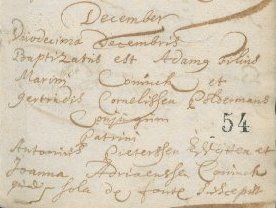 December
Duodecima Decembris
Baptizatus est Adamus filius
Marini Coninck et
Gertrudis Cornelissen Poldermans
Conjugum
54
Patrini
Antonius Pieterssen et
Joanna Adriaenssen Coninck
quae sola de fonte suscepit